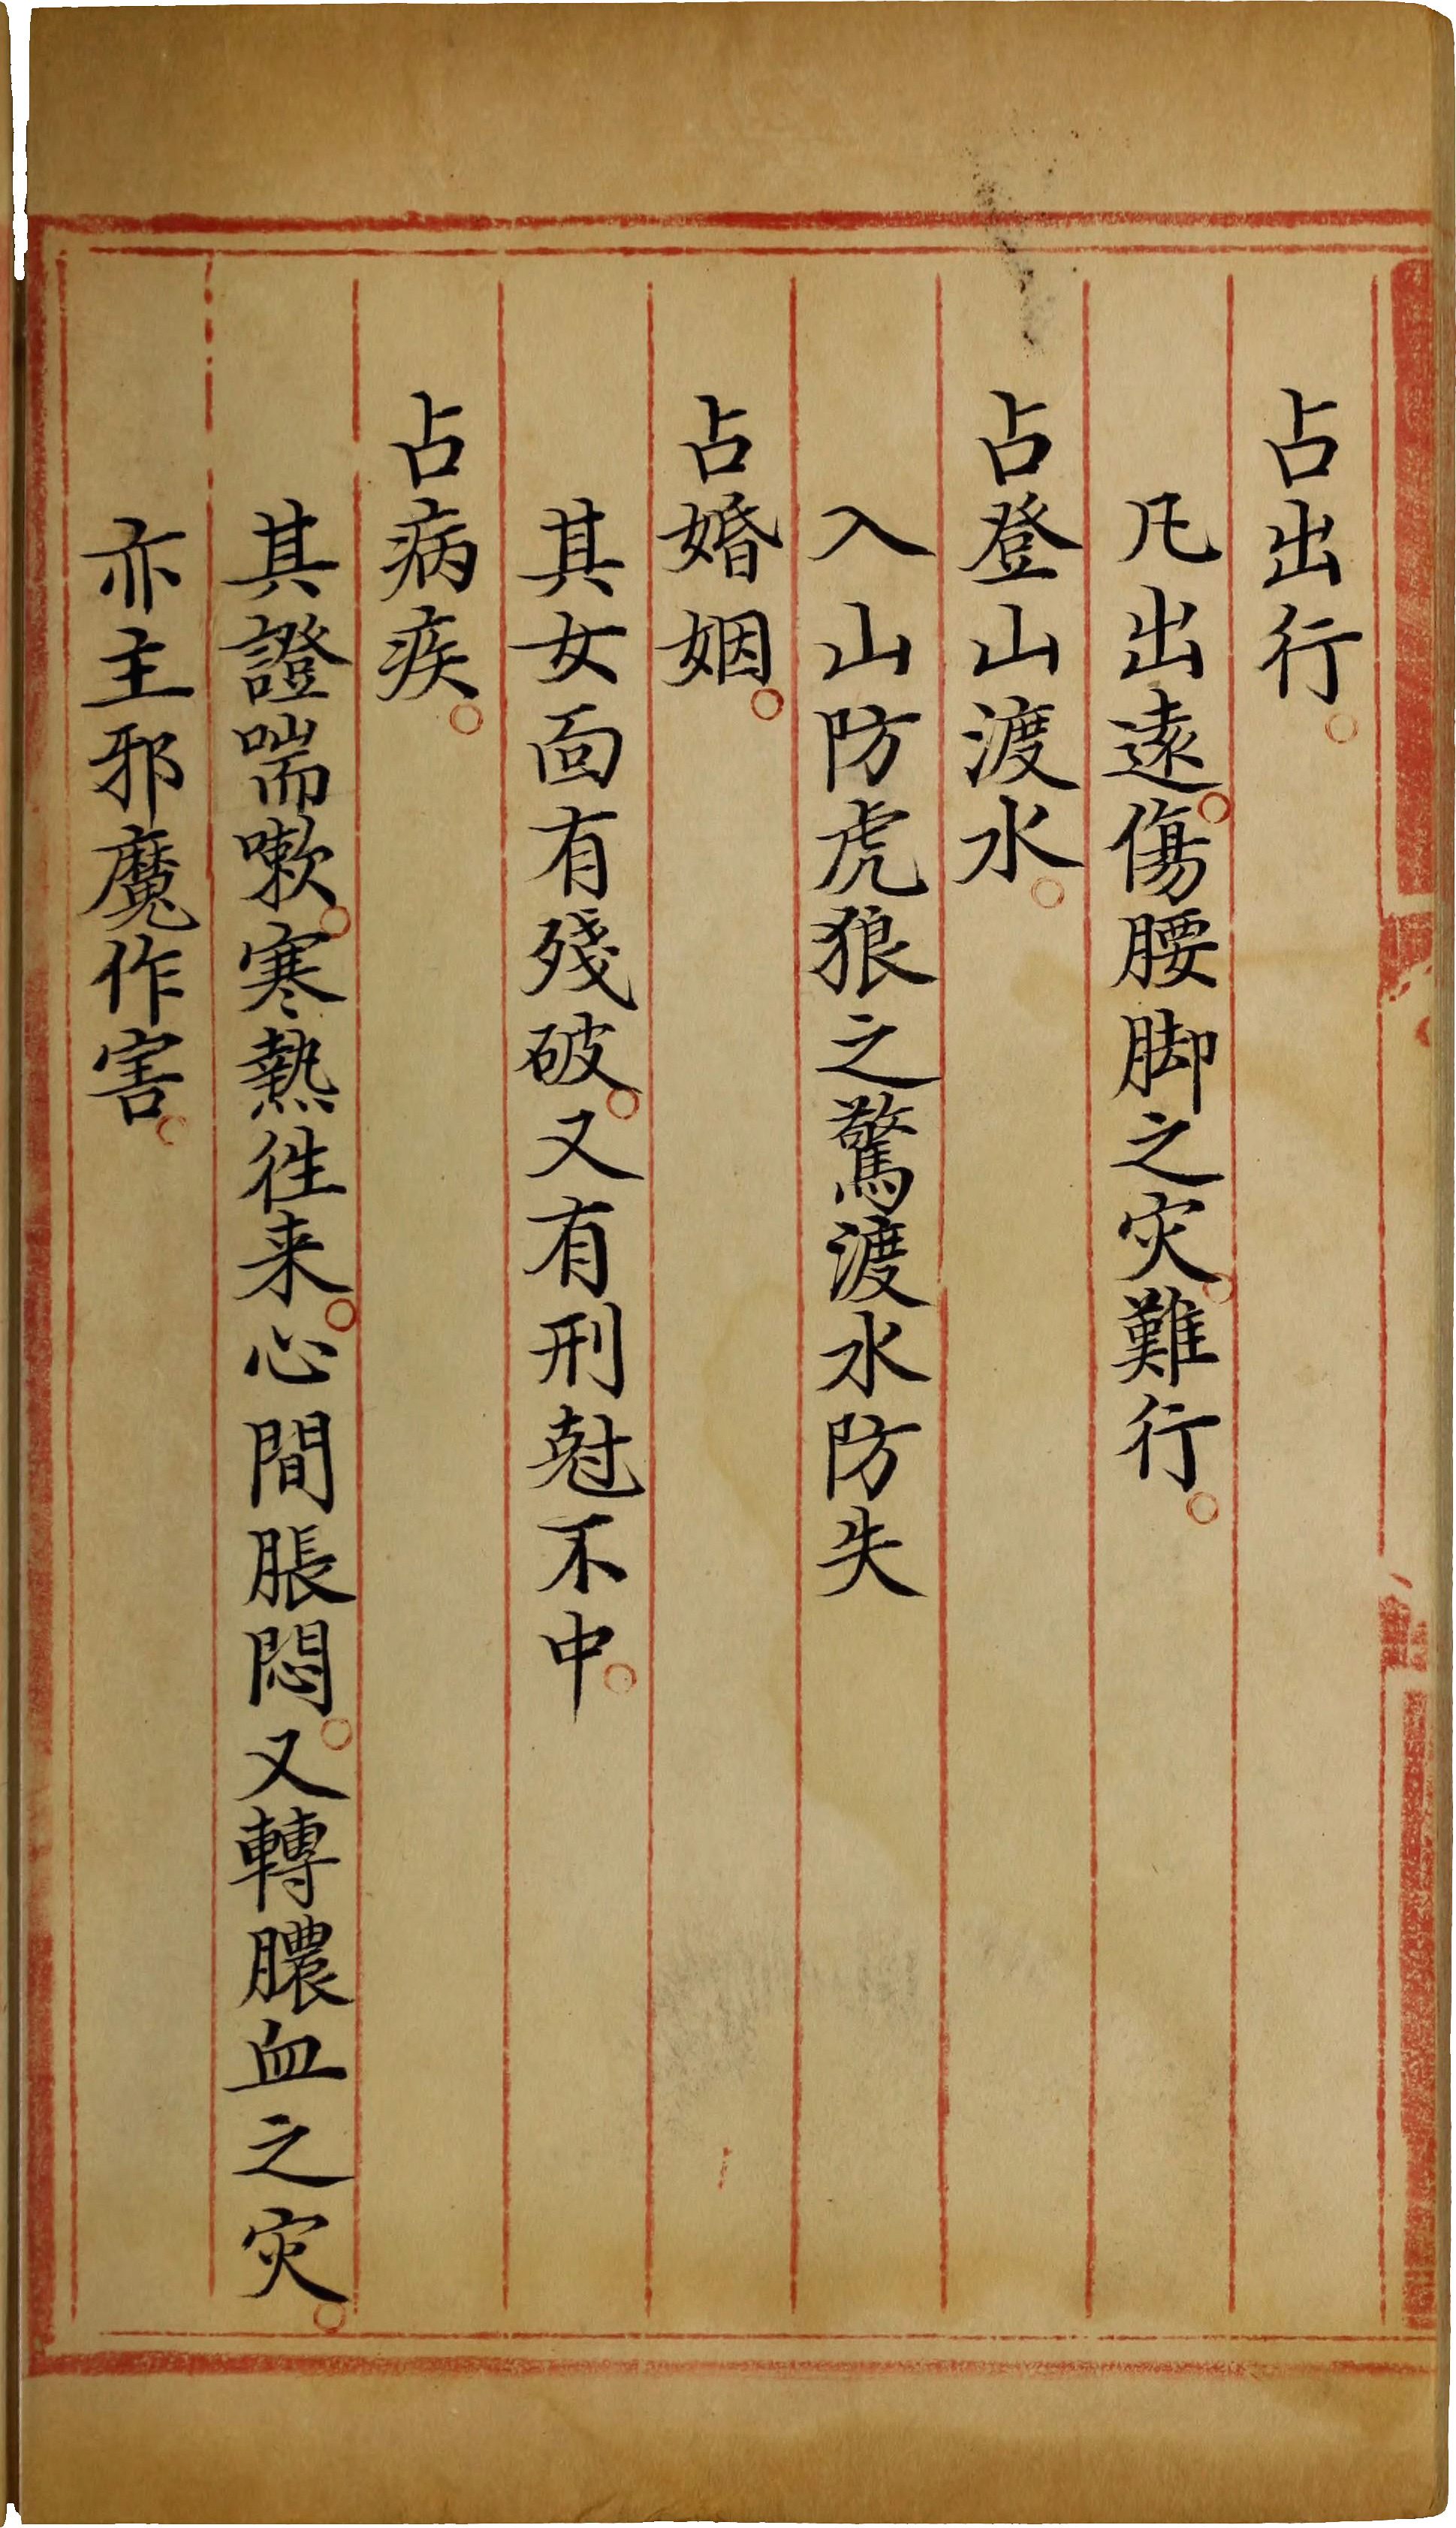 占出行。
凡出遠。傷腰脚之灾。難行。
占登山渡水。
入山防虎狼之驚渡水防失
占婚姻。
其女面有殘破。又有刑尅不中。
占病疾。
其證喘嗽。寒熱徃来。心間脹悶。又轉膿血之灾。
亦主邪魔作害。